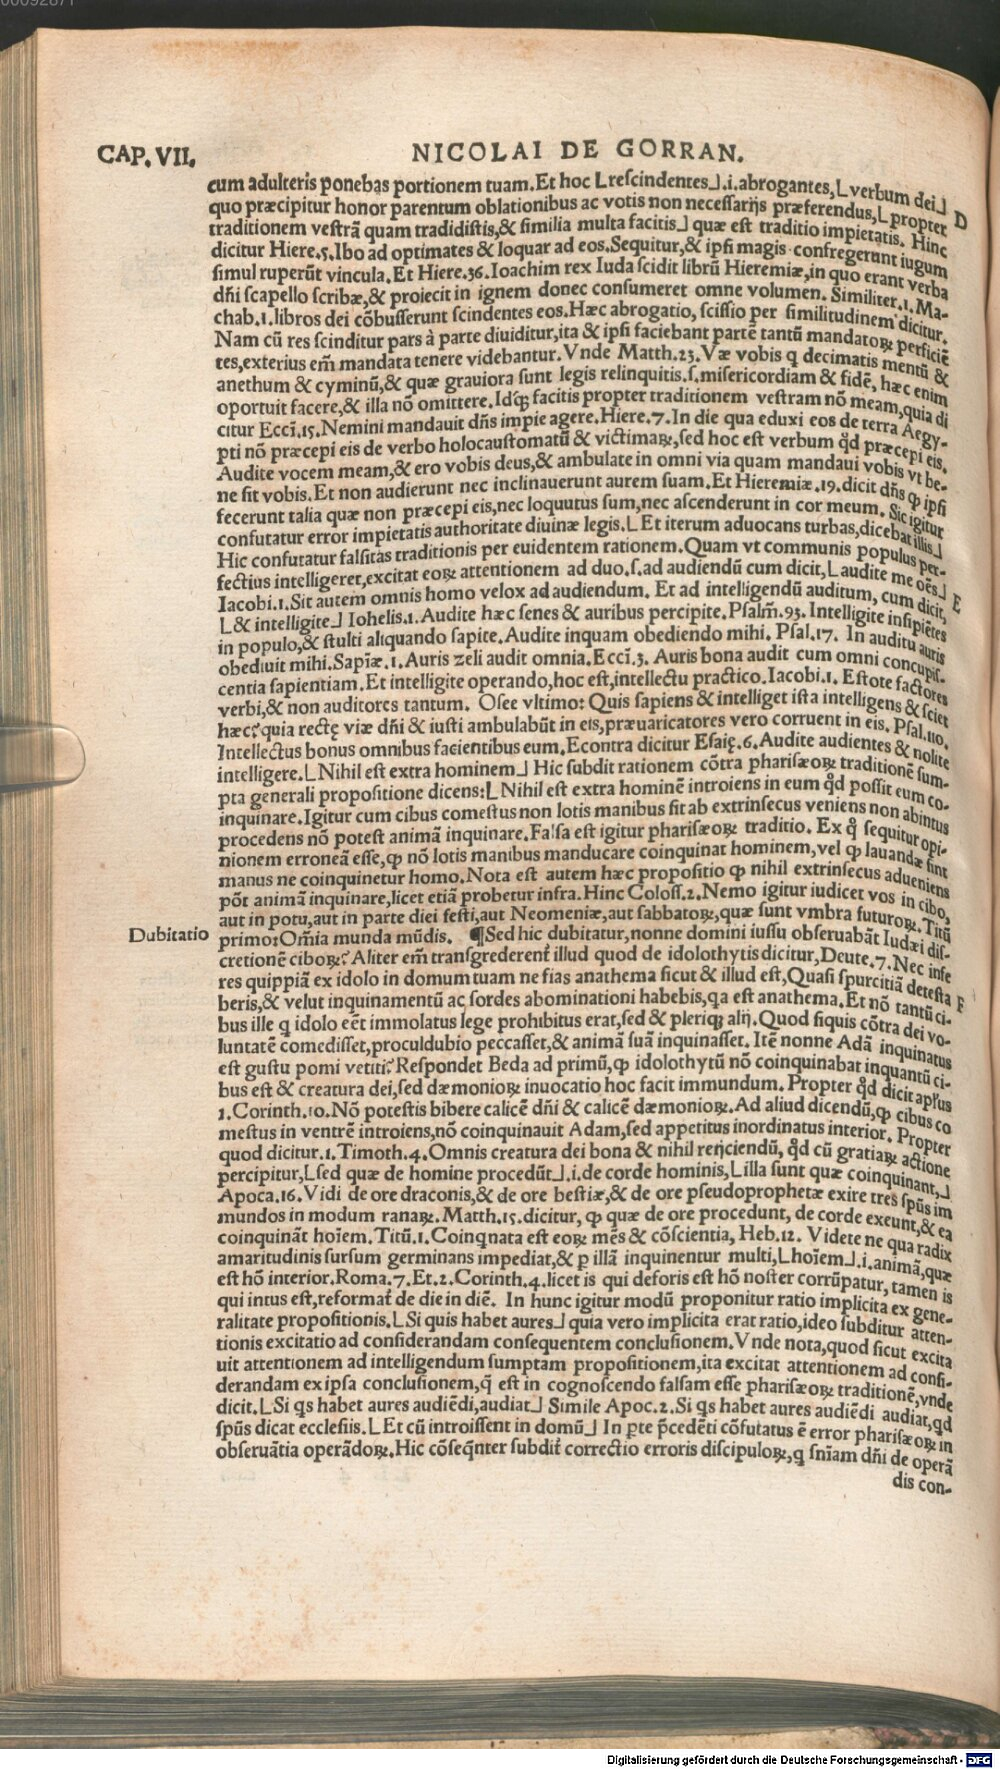 CAP. VII.
NICOLAI DE GORRAN.
cum adulteris ponebas portionem tuam. Et hoc ⌊rescindentes⌋ .i. abrogantes, ⌊verbum dei⌋ D
quo præcipitur honor parentum oblationibus ac votis non necessarijs præferendus, ⌊propter
traditionem vestrā quam tradidistis, & similia multa facitis⌋ quæ est traditio impietatis. Hinc
dicitur Hiere.5. Ibo ad optimates & loquar ad eos. Sequitur, & ipsi magis confregerunt iugum
simul ruperūt vincula. Et Hiere.36. Ioachim rex Iuda scidit librū Hieremiæ, in quo erant verba
dñi scapello scribæ, & proiecit in ignem donec consumeret omne volumen. Similiter .1. Ma-
chab.1. libros dei cōbusserunt scindentes eos. Hæc abrogatio, scissio per similitudinem dicitur.
Nam cū res scinditur pars à parte diuiditur, ita & ipsi faciebant partē tantū mandatoꝝ perficiē
tes, exterius em̄ mandata tenere videbantur. Vnde Matth.23. Væ vobis q decimatis mentū &
anethum & cyminū, & quæ grauiora sunt legis relinquitis .s. misericordiam & fidē, hæc enim
oportuit facere, & illa nō omittere. Idꝙ facitis propter traditionem vestram nō meam, quia di
citur Eccī.15. Nemini mandauit dñs impie agere. Hiere.7. In die qua eduxi eos de terra Aegy-
pti nō præcepi eis de verbo holocaustomatū & victimaꝝ, sed hoc est verbum qd̄ præcepi eis.
Audite vocem meam, & ero vobis deus, & ambulate in omni via quam mandaui vobis vt be-
ne sit vobis. Et non audierunt nec inclinauerunt aurem suam. Et Hieremiæ.19. dicit dñs ꝙ ipsi
fecerunt talia quæ non præcepi eis, nec loquutus sum, nec ascenderunt in cor meum. Sic igitur
confutatur error impietatis authoritate diuinæ legis. ⌊Et iterum aduocans turbas, dicebat illis⌋
Hic confutatur falsitas traditionis per euidentem rationem. Quam vt communis populus per-
fectius intelligeret, excitat eoꝝ attentionem ad duo .s. ad audiendū cum dicit, ⌊audite me oēs⌋ E
Iacobi.1. Sit autem omnis homo velox ad audiendum. Et ad intelligendū auditum, cum dicit,
⌊& intelligite⌋ Iohelis.1. Audite hæc senes & auribus percipite. Psalm̄.93. Intelligite insipiētes
in populo, & stulti aliquando sapite. Audite inquam obediendo mihi. Psal.17. In auditu auris
obediuit mihi. Sapīæ.1. Auris zeli audit omnia. Eccī.3. Auris bona audit cum omni concupis-
centia sapientiam. Et intelligite operando, hoc est, intellectu practico. Iacobi.1. Estote factores
verbi, & non auditores tantum. Osee vltimo: Quis sapiens & intelliget ista intelligens & sciet
hæc? quia rectę viæ dñi & iusti ambulabūt in eis, præuaricatores vero corruent in eis. Psal.110.
Intellectus bonus omnibus facientibus eum. Econtra dicitur Esaię.6. Audite audientes & nolite
intelligere. ⌊Nihil est extra hominem⌋ Hic subdit rationem cōtra pharisæoꝝ traditionē sum-
pta generali propositione dicens: ⌊Nihil est extra hominē introiens in eum qd̄ possit eum co-
inquinare. Igitur cum cibus comestus non lotis manibus sit ab extrinsecus veniens non abintus
procedens nō potest animā inquinare. Falsa est igitur pharisæoꝝ traditio. Ex q̊ sequitur opi-
nionem erroneā esse, ꝙ nō lotis manibus manducare coinquinat hominem, vel ꝙ lauandæ sint
manus ne coinquinetur homo. Nota est autem hæc propositio ꝙ nihil extrinsecus adueniens
pōt animā inquinare, licet etiā probetur infra. Hinc Coloss.2. Nemo igitur iudicet vos in cibo,
aut in potu, aut in parte diei festi, aut Neomeniæ, aut sabbatoꝝ, quæ sunt vmbra futuroꝝ. Titū
Dubitatio
primo: Om̄ia munda mūdis. ¶ Sed hic dubitatur, nonne domini iussu obseruabāt Iudæi dis-
cretionē ciboꝝ? Aliter em̄ transgrederent̄ illud quod de idolothytis dicitur, Deute.7. Nec infe
res quippiā ex idolo in domum tuam ne fias anathema sicut & illud est, Quasi spurcitiā detesta F
beris, & velut inquinamentū ac sordes abominationi habebis, qa est anathema. Et nō tantū ci-
bus ille q idolo eēt immolatus lege prohibitus erat, sed & pleriqꝫ alij. Quod siquis cōtra dei vo-
luntatē comedisset, proculdubio peccasset, & animā suā inquinasset. Itē nonne Adā inquinatus
est gustu pomi vetiti? Respondet Beda ad primū, ꝙ idolothytū nō coinquinabat inquantū ci-
bus est & creatura dei, sed dæmonioꝝ inuocatio hoc facit immundum. Propter qd̄ dicit apl̄us
1. Corinth.10. Nō potestis bibere calicē dñi & calicē dæmonioꝝ. Ad aliud dicendū, ꝙ cibus co
mestus in ventrē introiens, nō coinquinauit Adam, sed appetitus inordinatus interior. Propter
quod dicitur .1. Timoth.4. Omnis creatura dei bona & nihil reijciendū, qd̄ cū gratiaꝝ actione
percipitur, ⌊sed quæ de homine procedūt⌋ .i. de corde hominis, ⌊illa sunt quæ coinquinant,⌋
Apoca.16. Vidi de ore draconis, & de ore bestiæ, & de ore pseudoprophetæ exire tres sp̄us im
mundos in modum ranaꝝ. Matth.15. dicitur, ꝙ quæ de ore procedunt, de corde exeunt, & ea
coinquināt hoīem. Titū.1. Coinqnata est eoꝝ mēs & cōscientia, Heb.12. Videte ne qua radix
amaritudinis sursum germinans impediat, & p illā inquinentur multi, ⌊hoīem⌋ .i. animā, quæ
est hō interior. Roma.7. Et .2. Corinth.4. licet is qui deforis est hō noster corrūpatur, tamen is
qui intus est, reformat̄ de die in diē. In hunc igitur modū proponitur ratio implicita ex gene-
ralitate propositionis. ⌊Si quis habet aures⌋ quia vero implicita erat ratio, ideo subditur atten-
tionis excitatio ad considerandam consequentem conclusionem. Vnde nota, quod sicut excita
uit attentionem ad intelligendum sumptam propositionem, ita excitat attentionem ad consi-
derandam ex ipsa conclusionem, q̄ est in cognoscendo falsam esse pharisæoꝝ traditionē, vnde
dicit. ⌊Si qs habet aures audiēdi, audiat⌋ Simile Apoc.2. Si qs habet aures audiēdi audiat, qd
sp̄us dicat ecclesiis. ⌊Et cū introissent in domū⌋ In p̄te p̄cedēti cōfutatus ē error pharisæoꝝ in
obseruātia operādoꝝ. Hic cōseq̄nter subdit̄ correctio erroris discipuloꝝ, q sn̄iam dñi de operā
dis con-
Digitalisierung gefördert durch die Deutsche Forschungsgemeinschaft - DFG